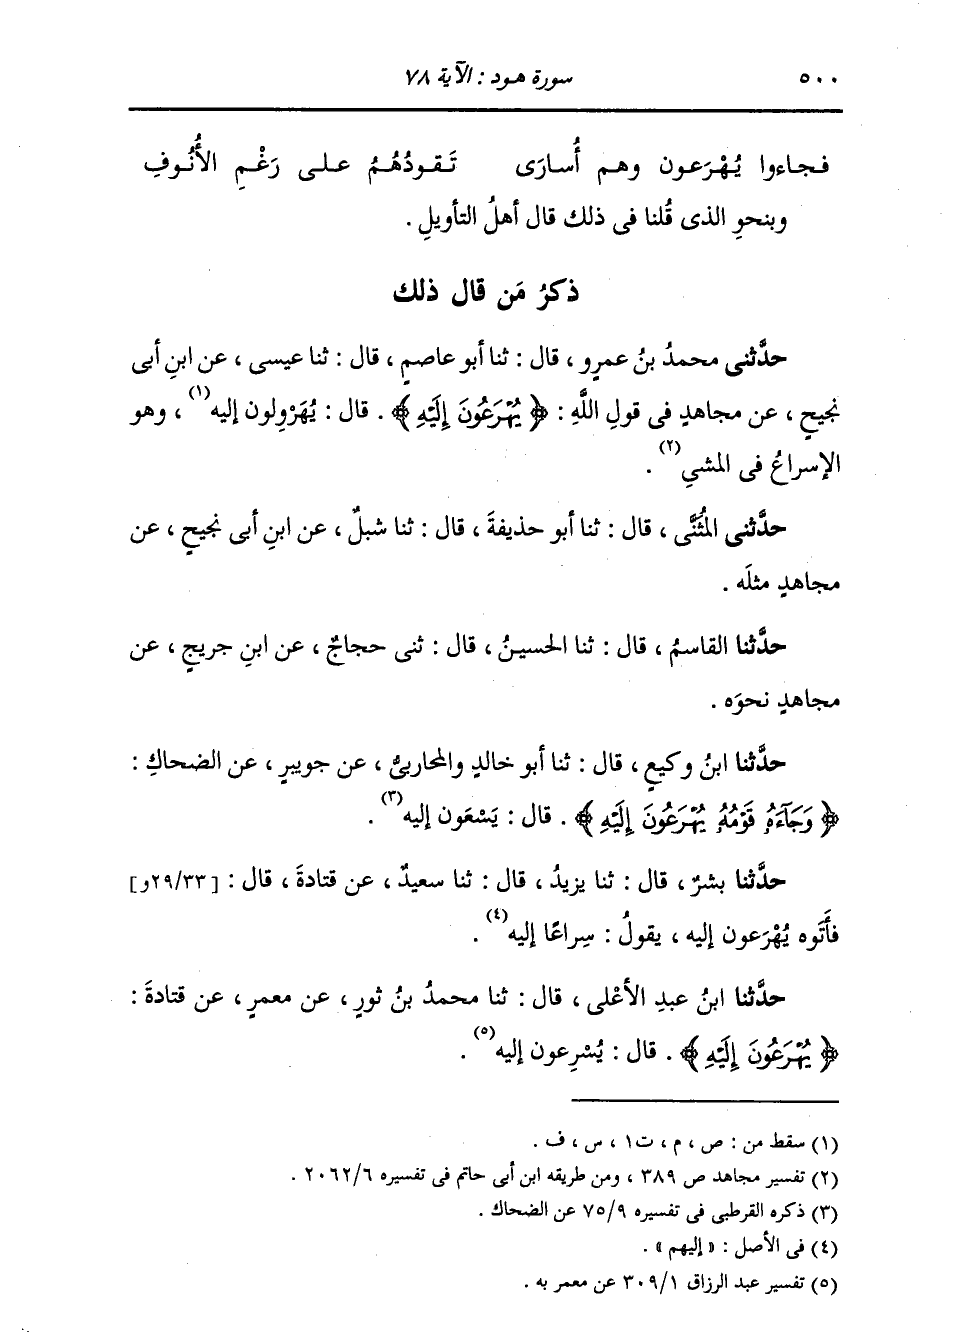 ٥٠٠ سورة هود : الآية ٧٨
فجاءوا يُهْرَعون وهم أُسارَى تَقودُهُمُ على رَغْمِ الأُنُوفِ
وبنحوِ الذى قُلنا فى ذلك قال أهلُ التأويلِ .
ذكرُ مَن قال ذلك
حدَّثنى محمدُ بنُ عمرٍو ، قال : ثنا أبو عاصمٍ ، قال : ثنا عيسى ، عن ابنِ أبى
نجيحٍ ، عن مجاهدٍ فى قولِ اللَّهِ : ﴿ يُهْرَعُونَ إِلَيْهِ ﴾ . قال : يُهَرْوِلون إليه(١) ، وهو
الإسراعُ فى المشيِ(٢) .
حدَّثنى المُثَنَّى ، قال : ثنا أبو حذيفةَ ، قال : ثنا شبلٌ ، عن ابنِ أبى نجيحٍ ، عن
مجاهدٍ مثلَه .
حدَّثنا القاسمُ ، قال : ثنا الحسينُ ، قال : ثنى حجاجٌ ، عن ابنِ جريجٍ ، عن
مجاهدٍ نحوَه .
حدَّثنا ابنُ وكيعٍ ، قال : ثنا أبو خالدٍ والمحاربىُّ ، عن جويبرٍ ، عن الضحاكِ :
﴿ وَجَآءَهُۥ قَوْمُهُۥ يُهْرَعُونَ إِلَيْهِ ﴾ . قال : يَسْعَون إليه(٣) .
حدَّثنا بشرٌ ، قال : ثنا يزيدُ ، قال : ثنا سعيدٌ ، عن قتادةَ ، قال : [٢٩/٣٣و]
فأَتَوه يُهْرَعون إليه ، يقولُ : سِراعًا إليه(٤) .
حدَّثنا ابنُ عبدِ الأعْلى ، قال : ثنا محمدُ بنُ ثورٍ ، عن معمرٍ ، عن قتادةَ :
﴿ يُهْرَعُونَ إِلَيْهِ ﴾ . قال : يُسْرِعون إليه(٥) .
(١) سقط من : ص ، م ، ت١ ، س ، ف .
(٢) تفسير مجاهد ص ٣٨٩ ، ومن طريقه ابن أبى حاتم فى تفسيره ٢٠٦٢/٦ .
(٣) ذكره القرطبى فى تفسيره ٧٥/٩ عن الضحاك .
(٤) فى الأصل : « إليهم » .
(٥) تفسير عبد الرزاق ٣٠٩/١ عن معمر به .